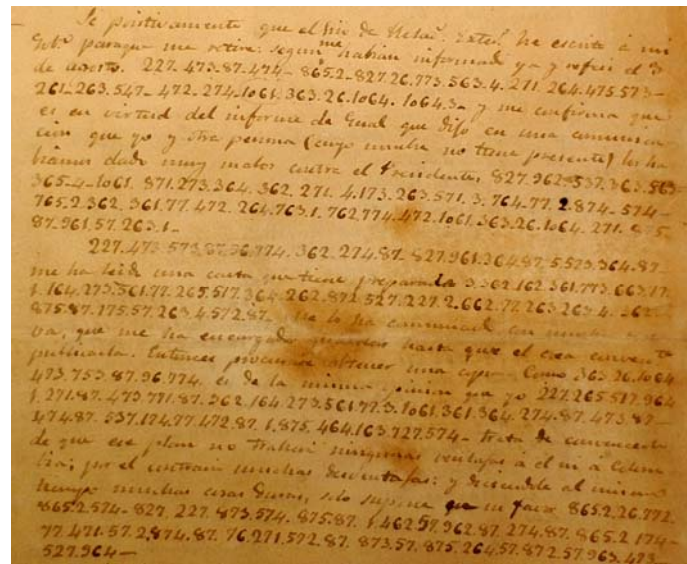 Se positivamente que el Mio de Relac. Exter. ha escrito á mi
Gob.º paraque me retire: segun me habian informado ya y referi el 3
de agosto. 227-473-87-474- 865.2-827.26.773.563.4.271.264.475.573-
261-263.547- 472.274.1061.363.26.1064.1064.3- y me confirma que
es en virtud del informe de Gual que dijo en una comunica
cion que yo y otra persona (cuyo nombre no tiene presente) los ha
biamos dado muy malos contra el Presidente. 827.962.537.363.563
365-4-1061. 871.273.364.362.271.4.173.263.571.3.764-77.2.874-574-
765.2.362.361.77.472.264.763.1.762.774.472.1061.363.26.1064.271.875-
87.961.57.263.1-
227.473.573.87.96.774.362.274.87.827.961.364.87.5.573.364.87-
me ha leido una carta que tiene preparada 3.362.162.361.773.663.17.
1.164.273.561.77.265.517.364.262.872.527.227.2.662.77.263.263.4.362-
875.87.175.57.263.4.572.87- me lo ha comunicado con mucha
va, que me ha encargado guardar hasta que el crea convente
publicarla. Entonces procurare obtener una copia. Como 363.26.1064
473.753.87.96.774. es de la misma opinion que yo 227.265.517.964
1.271.87.473.771.87.362.164.273.561.77.3.1061.361.364.274.87.473.87-
474.87.537.174.77.472.87.1.875.464.163.727.574- trata de convencerlo
de que ese plan no traheria ningunas ventajas á el ni á Colom
bia; por el contrario muchas desventajas: y diciendole al mismo
tiempo muchas cosas duras, solo supone que en favor 865.2.26.772.
865.2.574-827.227.873.574.875.87.1.462.57.962.87.274.87.865.2.174-
77.471.57.2.874.87.76.271.572.87.873.57.875.264.57.872.57.963.473-
527.964-